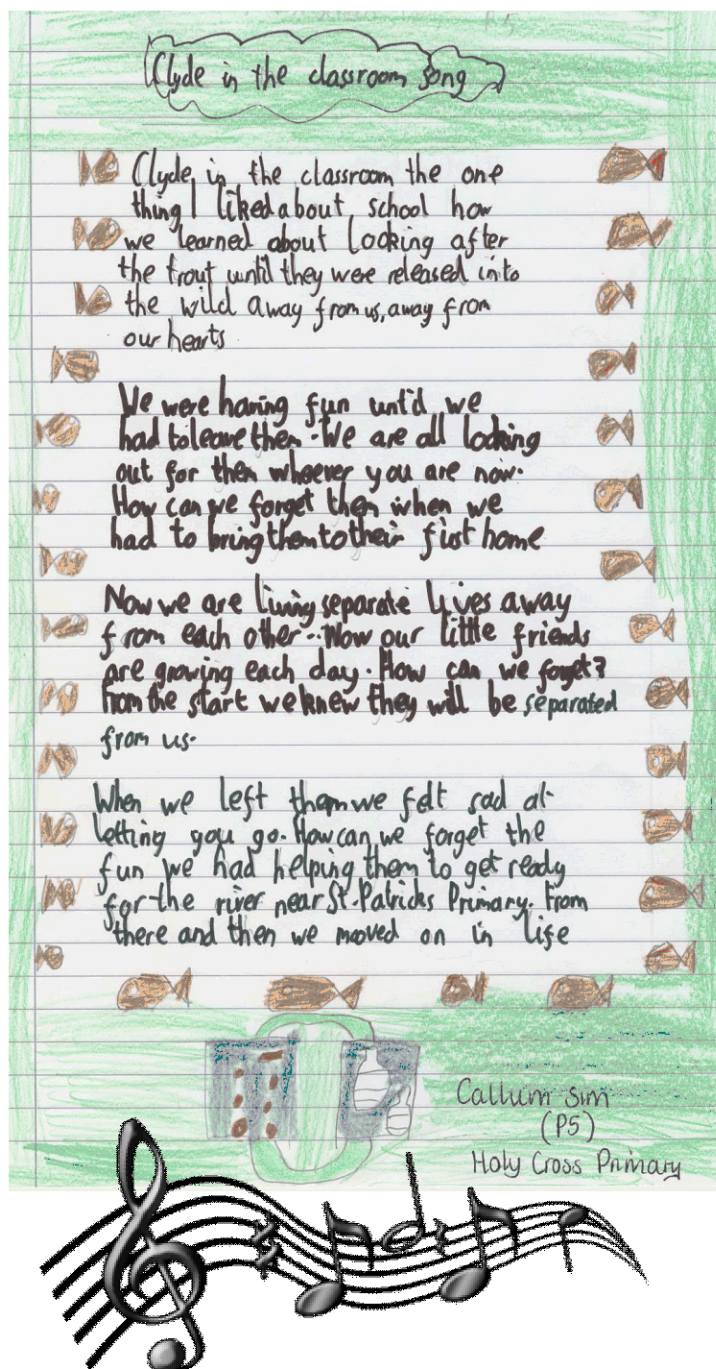 Clyde in the classroom song
Clyde in the classroom the one
thing I liked about school how
we learned about looking after
the trout until they were released into
the wild away from us, away from
our hearts
We were having fun until we
had to leave them. We are all looking
out for them whoever you are now.
How can we forget them when we
had to bring them to their first home
Now we are living separate lives away
from each other.. Now our little friends
are growing each day. How can we forget?
From the start we knew they will be separated
from us.
When we left them we felt sad at
letting you go. How can we forget the
fun we had helping them to get ready
for the river near St. Patricks Primary. From
there and then we moved on in life
Callum Sim
(P5)
Holy Cross Primary